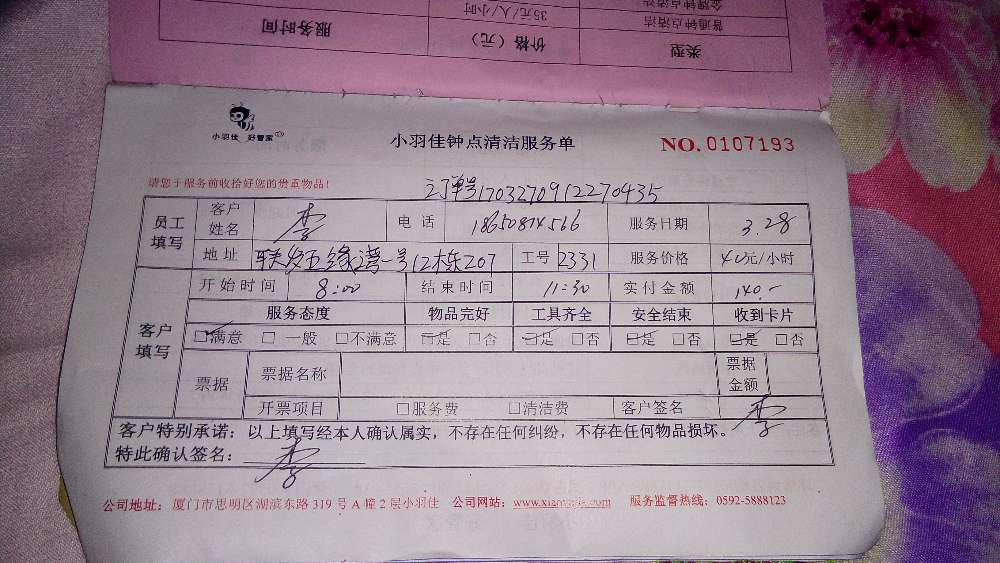 普通钟点清洁 35元/人/小时
类型 价格（元） 服务时间
小羽佳 好管家
小羽佳钟点清洁服务单 NO.0107193
请您于服务前收拾好您的贵重物品！
订单号17032709122270435
员工填写 客户姓名 李 电话 服务日期 3.28
地址 联发五缘湾一号12栋207 工号 2331 服务价格 40元/小时
客户填写 开始时间 8:00 结束时间 11:30 实付金额 140.-
服务态度 物品完好 工具齐全 安全结束 收到卡片
☑满意 □一般 □不满意 ☑是 □否 ☑是 □否 ☑是 □否 ☑是 □否
票据 票据名称 票据金额
开票项目 □服务费 □清洁费 客户签名 李
客户特别承诺：以上填写经本人确认属实，不存在任何纠纷，不存在任何物品损坏。
特此确认签名： 李
公司地址：厦门市思明区湖滨东路319号A幢2层小羽佳 公司网站： 服务监督热线：0592-5888123